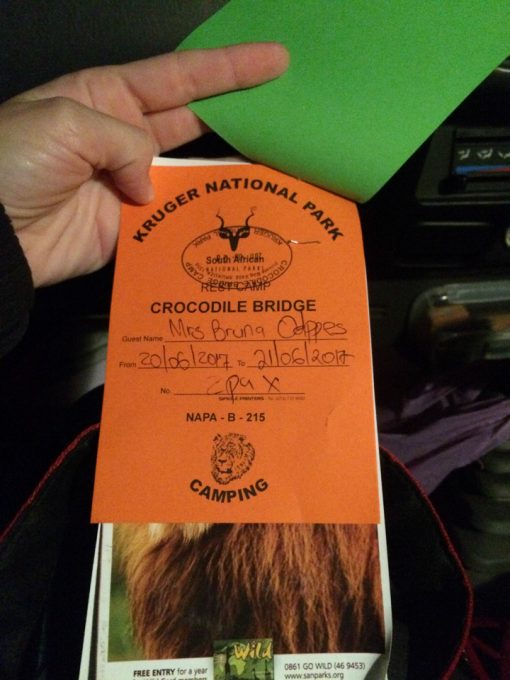 KRUGER NATIONAL PARK
South African
NATIONAL PARKS
REST CAMP
CROCODILE BRIDGE
Guest Name Mrs Bruna
From 20/06/2017 To 21/06/2017
No. 2pax
NAPA - B - 215
CAMPING
Wild
FREE ENTRY for a year
0861 GO WILD (46 9453)
www.sanparks.org